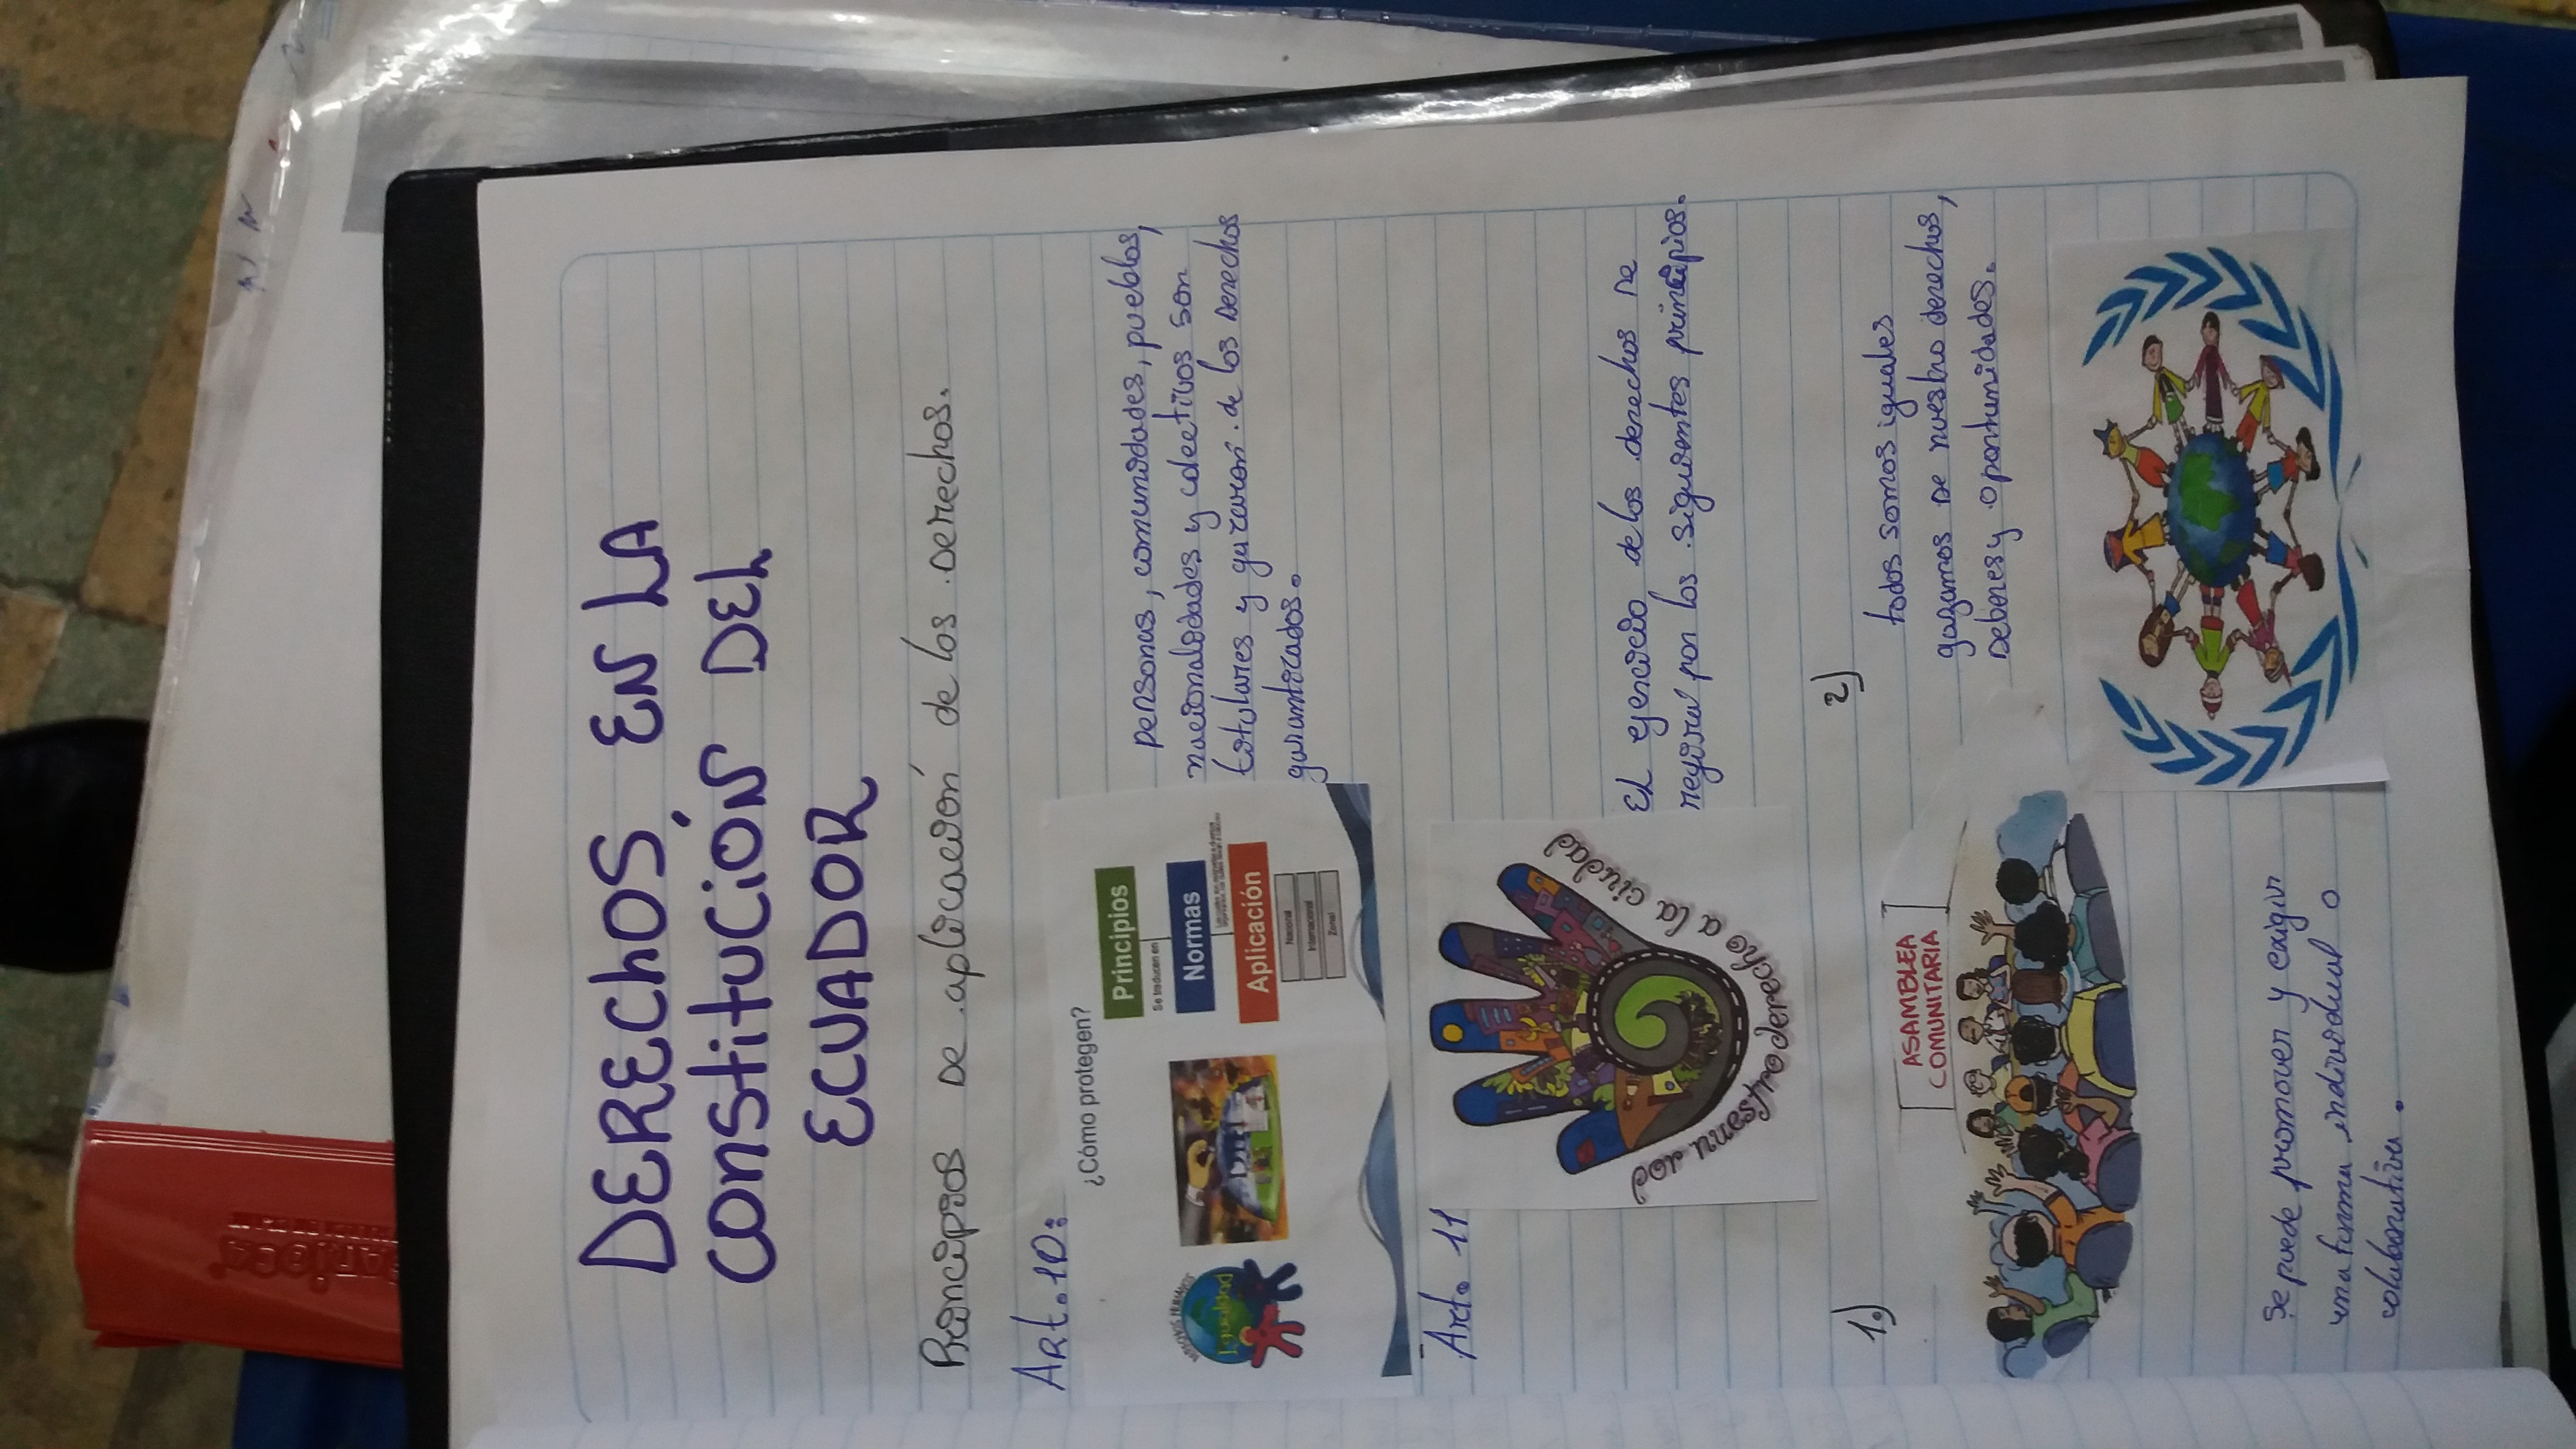 DERECHOS EN LA
CONSTITUCIÓN DEL
ECUADOR
Principios de aplicación de los Derechos.
Art. 10:
¿Cómo protegen?
Principios
Se traducen en
Normas
Aplicación
Nacional
Internacional
Zonal
DERECHOS HUMANOS
Igualdad
DIH
personas, comunidades, pueblos,
nacionalidades y colectivos son
titulares y gozarán de los Derechos
garantizados.
Art. 11
por nuestro derecho a la ciudad
El ejercicio de los derechos se
regirá por los siguientes principios.
1.)
ASAMBLEA
COMUNITARIA
Se puede promover y exigir
una forma individual o
colaborativa.
2)
todos somos iguales
gazamos de nuestro derechos,
Deberes y oportunidades.